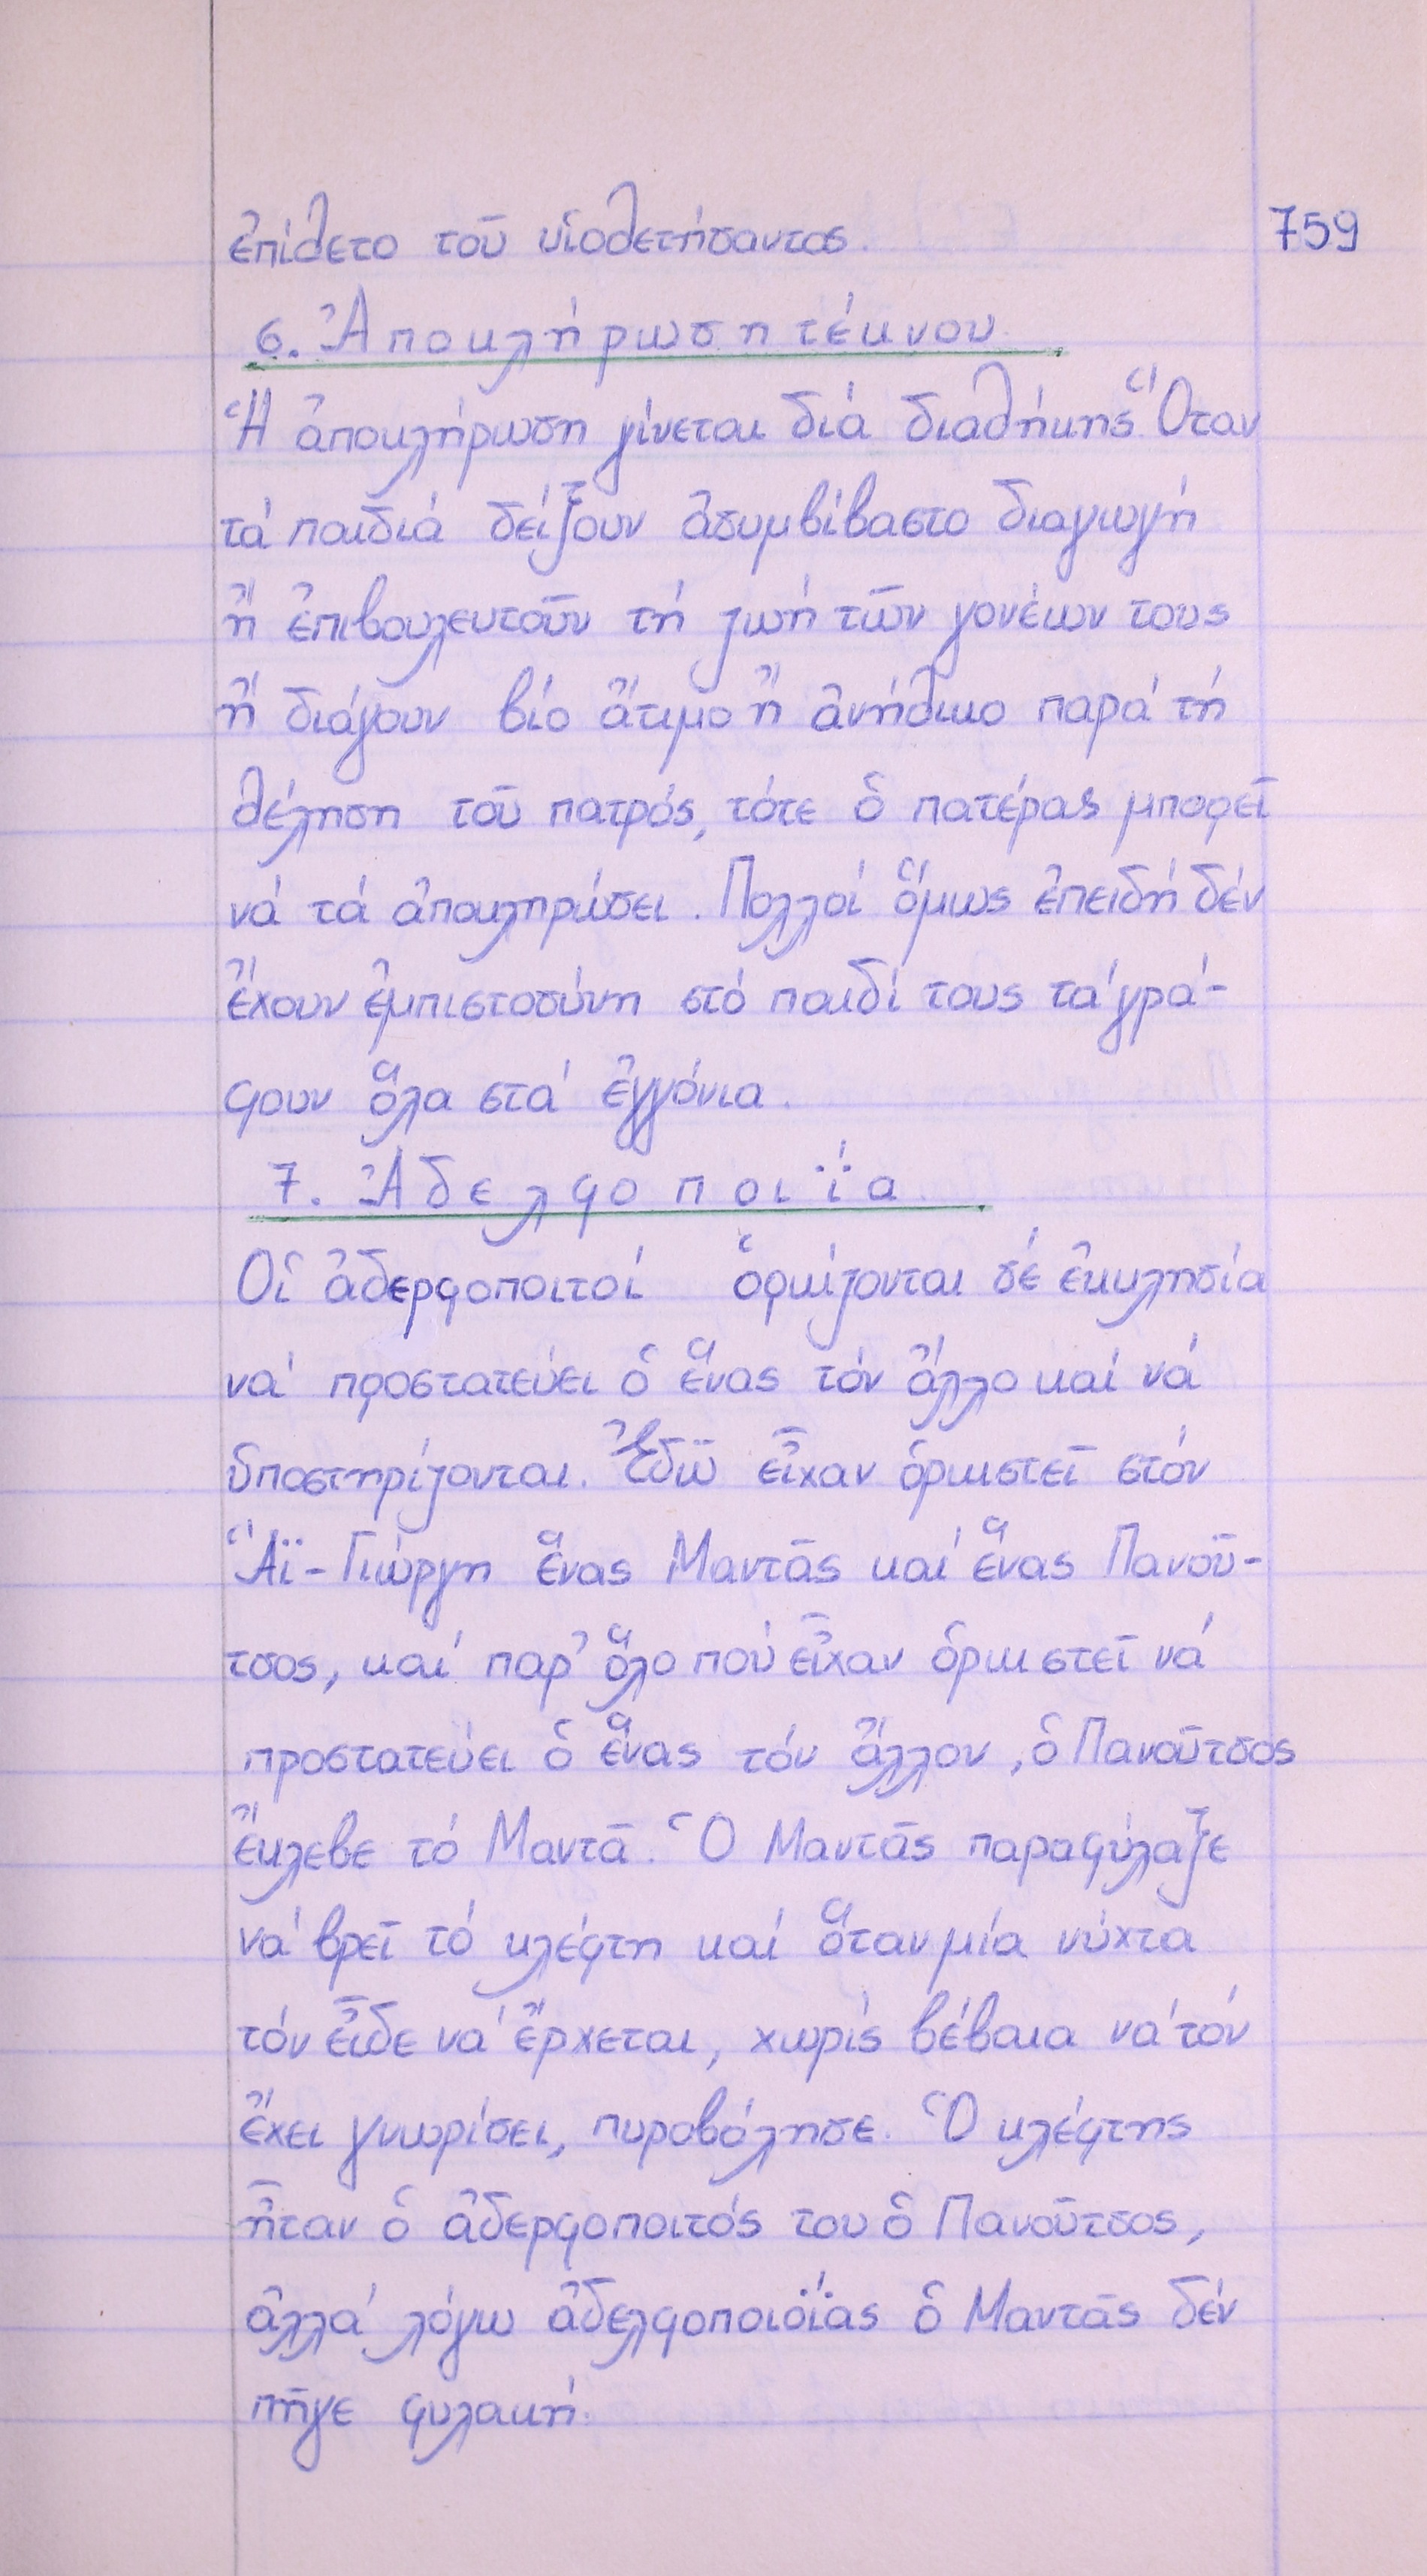 ἐπίθετο τοῦ υἱοθετήσαντος. 759
6. Ἀποκλήρωση τέκνου.
Ἡ ἀποκλήρωση γίνεται διά διαθήκης. Ὅταν
τά παιδιά δείξουν ἀσυμβίβαστο διαγωγή
ἤ ἐπιβουλευτοῦν τή ζωή τῶν γονέων τους
ἤ διάγουν βίο ἄτιμο ἤ ἀνήθικο παρά τή
θέληση τοῦ πατρός, τότε ὁ πατέρας μπορεῖ
νά τά ἀποκληρώσει. Πολλοί ὅμως ἐπειδή δέν
ἔχουν ἐμπιστοσύνη στό παιδί τους τά γρά-
φουν ὅλα στά ἐγγόνια.
7. Ἀδελφοποιΐα.
Οἱ ἀδερφοποιτοί ὁρκίζονται σέ ἐκκλησία
νά προστατεύει ὁ ἕνας τόν ἄλλο καί νά
ὑποστηρίζονται. Ἐδῶ εἶχαν ὁρκιστεῖ στόν
Ἅϊ-Γιώργη ἕνας Μαντᾶς καί ἕνας Πανοῦ-
τσος, καί παρ' ὅλο πού εἶχαν ὁρκιστεῖ νά
προστατεύει ὁ ἕνας τόν ἄλλον, ὁ Πανοῦτσος
ἔκλεβε τό Μαντᾶ. Ὁ Μαντᾶς παραφύλαξε
νά βρεῖ τό κλέφτη καί ὅταν μία νύχτα
τόν εἶδε νά ἔρχεται, χωρίς βέβαια νά τόν
ἔχει γνωρίσει, πυροβόλησε. Ὁ κλέφτης
ἦταν ὁ ἀδερφοποιτός του ὁ Πανοῦτσος,
ἀλλά λόγω ἀδελφοποιοΐας ὁ Μαντᾶς δέν
πῆγε φυλακή.